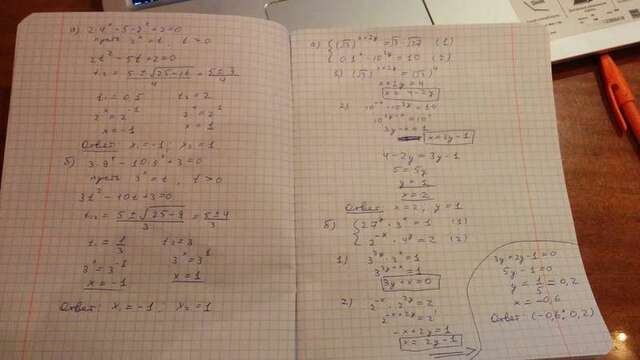 а) 2·4ˣ - 5·2ˣ + 2 = 0
пусть 2ˣ = t, t > 0
2t² - 5t + 2 = 0
t₁,₂ = (5 ± √(25-16))/4 = (5 ± 3)/4
t₁ = 0,5 t₂ = 2
2ˣ = 2⁻¹ 2ˣ = 2¹
x = -1 x = 1
Ответ: x₁ = -1; x₂ = 1
б) 3·9ˣ - 10·3ˣ + 3 = 0
пусть 3ˣ = t, t > 0
3t² - 10t + 3 = 0
t₁,₂ = (5 ± √(25-9))/3 = (5 ± 4)/3
t₁ = 1/3 t₂ = 3
3ˣ = 3⁻¹ 3ˣ = 3¹
x = -1 x = 1
Ответ: x₁ = -1; x₂ = 1
а) { (√3)ˣ⁺²ʸ = √3·√27 (1)
0,1ˣ·10³ʸ = 10 (2)
1) (√3)ˣ⁺²ʸ = (√3)⁴
x + 2y = 4
x = 4 - 2y
2) 10⁻ˣ·10³ʸ = 10
10³ʸ⁻ˣ = 10¹
3y - x = 1
x = 3y - 1
4 - 2y = 3y - 1
5 = 5y
y = 1
x = 2
Ответ: x = 2, y = 1
б) { 27ʸ·3ˣ = 1 (1)
2⁻ˣ·4ʸ = 2 (2)
1) 3³ʸ·3ˣ = 1
3³ʸ⁺ˣ = 1
3y + x = 0
2) 2⁻ˣ·2²ʸ = 2
2⁻ˣ⁺²ʸ = 2¹
-x + 2y = 1
x = 2y - 1
3y + 2y - 1 = 0
5y - 1 = 0
y = 1/5 = 0,2
x = -0,6
Ответ: (-0,6; 0,2)